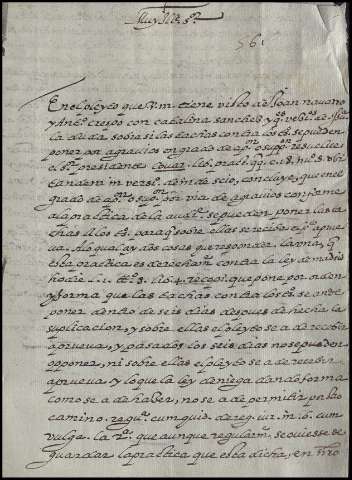 Muy Ille. sr.
561
En el pleyto que v.m. tiene visto de Joan navarro
y Ant.º crespo con catalina sanchez y
la duda sobre si las tachas contra los tºs. se pueden
poner por agravios en grado de resuelve
el sr. presidente Covar. lib. pract. qq. c. 18. nu. 8. ubi
tandem in versi. deinde scio, concluye, que en el
grado de por via de agravios conforme
a la practica de la se pueden poner las ta
chas a los tºs. para que sobre ellas se reciba a prue
va. A lo qual ay dos cosas que responder. la una, que
esta practica es derechamte. contra la ley
hodie l. 1. tit. 9. lib. 4. recop. que pone por orden
y forma que las tachas contra los tºs. se an de
poner dentro de seis dias despues de hecha la
publicacion, y sobre ellas el pleyto se a de recebir
a prueva, y pasados los seis dias no se pueden
oponer, ni sobre ellas el pleyto se a de recebir
a prueva y lo que la ley deniega dando forma
como se a de haber, no se a de permitir por otro
camino. reg. cum quid. de reg. iur. in 6. cum
vulga. la 2ª. que aunque regularmte. se oviesse de
guardar la practica que esta dicha, en nro